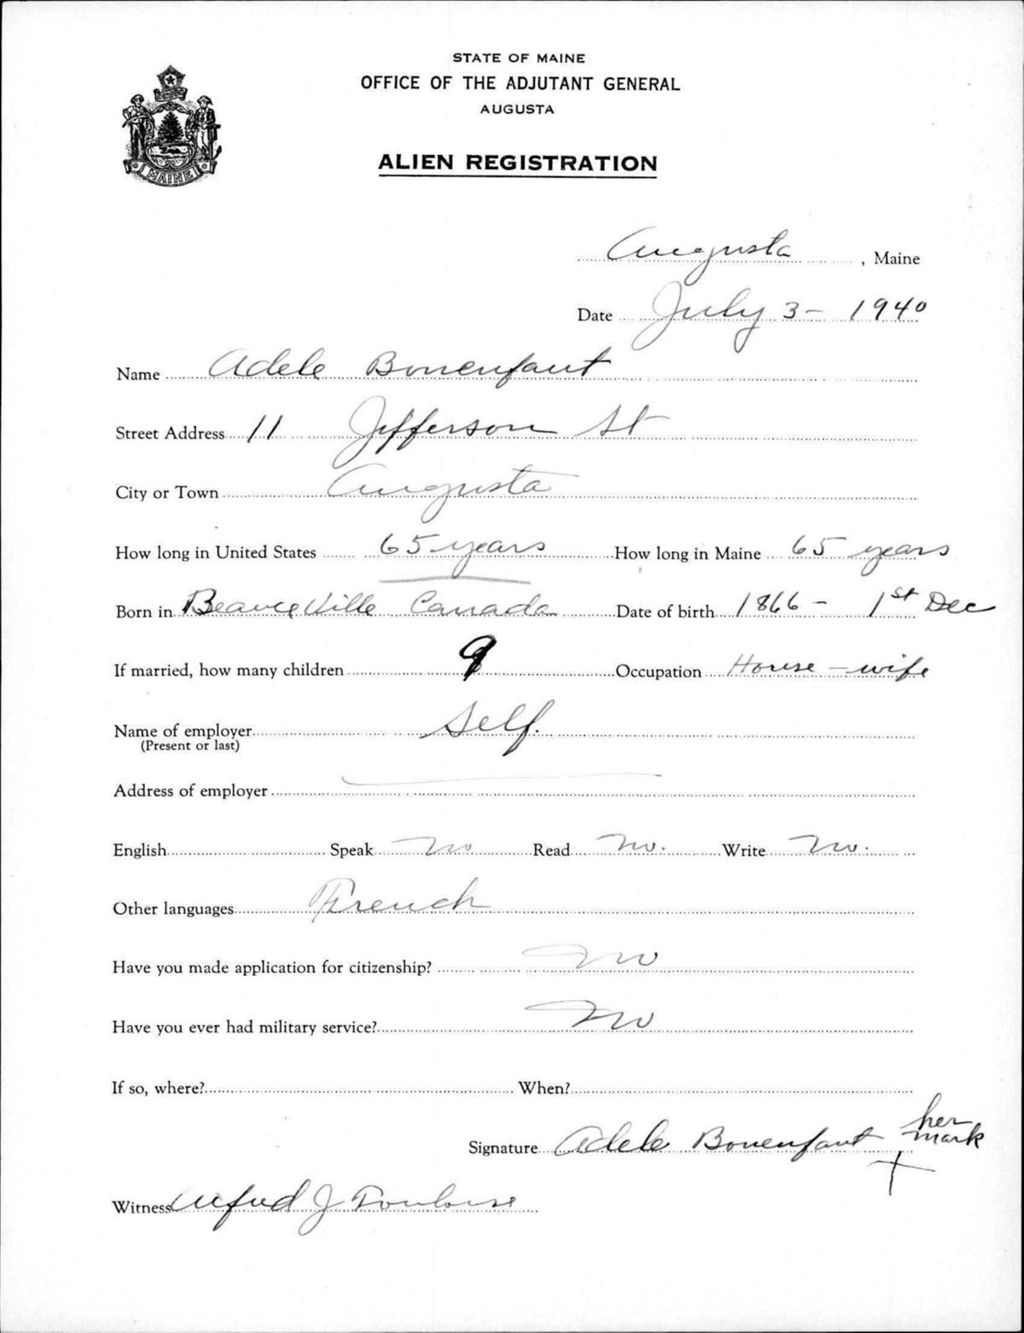 STATE OF MAINE
OFFICE OF THE ADJUTANT GENERAL
AUGUSTA
ALIEN REGISTRATION
MAINE
Augusta, Maine
Date July 3 - 1940
Name Adele Bonenfant
Street Address 11 Jefferson St
City or Town Augusta
How long in United States 65 years How long in Maine 65 years
Born in Beauceville Canada Date of birth 1866 - 1st Dec
If married, how many children 9 Occupation House-wife
Name of employer Self.
(Present or last)
Address of employer
English Speak No Read No. Write No.
Other languages French
Have you made application for citizenship? No
Have you ever had military service? No
If so, where? When?
Signature Adele Bonenfant her mark
Witness Alfred J